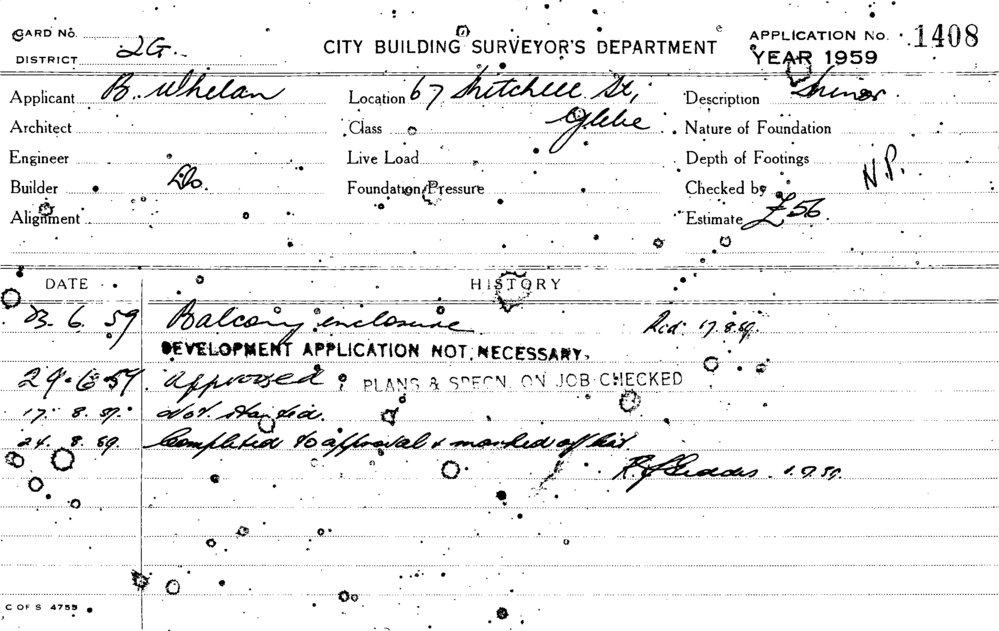 CARD NO.
DISTRICT 2G.
CITY BUILDING SURVEYOR'S DEPARTMENT
APPLICATION No. 1408
YEAR 1959
Applicant B. Whelan
Location 67 Mitchell St, Glebe
Description Minor
Architect
Class
Nature of Foundation
Engineer
Live Load
Depth of Footings
Builder Do.
Foundation Pressure
Checked by N.P.
Alignment
Estimate £56
DATE HISTORY
23. 6. 59 Balcony enclosure Rcd. 17.8.59.
DEVELOPMENT APPLICATION NOT NECESSARY.
29.6.59 Approved PLANS & SPECN. ON JOB CHECKED
17. 8. 59. Not started.
24. 8. 59. Completed to approval & marked off list
1.9.59.
C OF S 4755